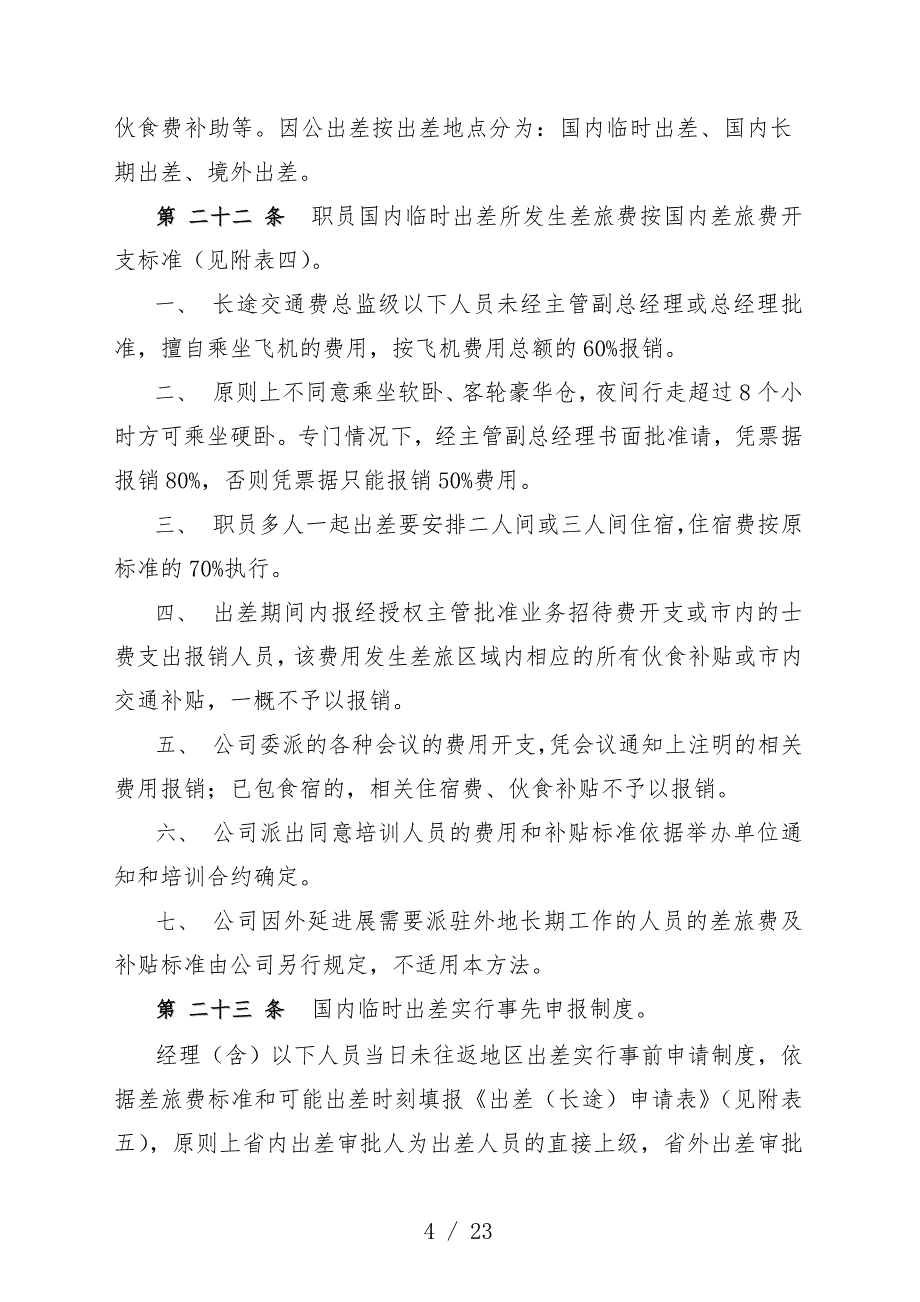 伙食费补助等。因公出差按出差地点分为：国内临时出差、国内长
期出差、境外出差。
第 二十二 条 职员国内临时出差所发生差旅费按国内差旅费开
支标准（见附表四）。
一、 长途交通费总监级以下人员未经主管副总经理或总经理批
准，擅自乘坐飞机的费用，按飞机费用总额的 60%报销。
二、 原则上不同意乘坐软卧、客轮豪华仓，夜间行走超过 8 个小
时方可乘坐硬卧。专门情况下，经主管副总经理书面批准请，凭票据
报销 80%，否则凭票据只能报销 50%费用。
三、 职员多人一起出差要安排二人间或三人间住宿，住宿费按原
标准的 70%执行。
四、 出差期间内报经授权主管批准业务招待费开支或市内的士
费支出报销人员，该费用发生差旅区域内相应的所有伙食补贴或市内
交通补贴，一概不予以报销。
五、 公司委派的各种会议的费用开支，凭会议通知上注明的相关
费用报销；已包食宿的，相关住宿费、伙食补贴不予以报销。
六、 公司派出同意培训人员的费用和补贴标准依据举办单位通
知和培训合约确定。
七、 公司因外延进展需要派驻外地长期工作的人员的差旅费及
补贴标准由公司另行规定，不适用本方法。
第 二十三 条 国内临时出差实行事先申报制度。
经理（含）以下人员当日未往返地区出差实行事前申请制度，依
据差旅费标准和可能出差时刻填报《出差（长途）申请表》（见附表
五），原则上省内出差审批人为出差人员的直接上级，省外出差审批
4 / 23